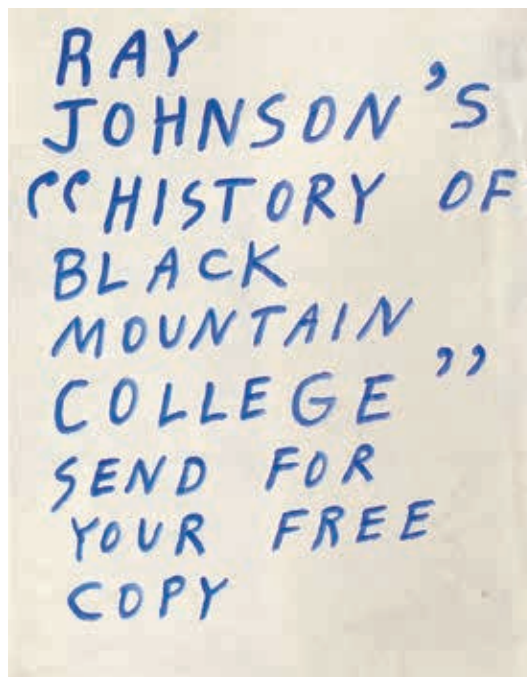 RAY
JOHNSON'S
“HISTORY OF
BLACK
MOUNTAIN
COLLEGE”
SEND FOR
YOUR FREE
COPY